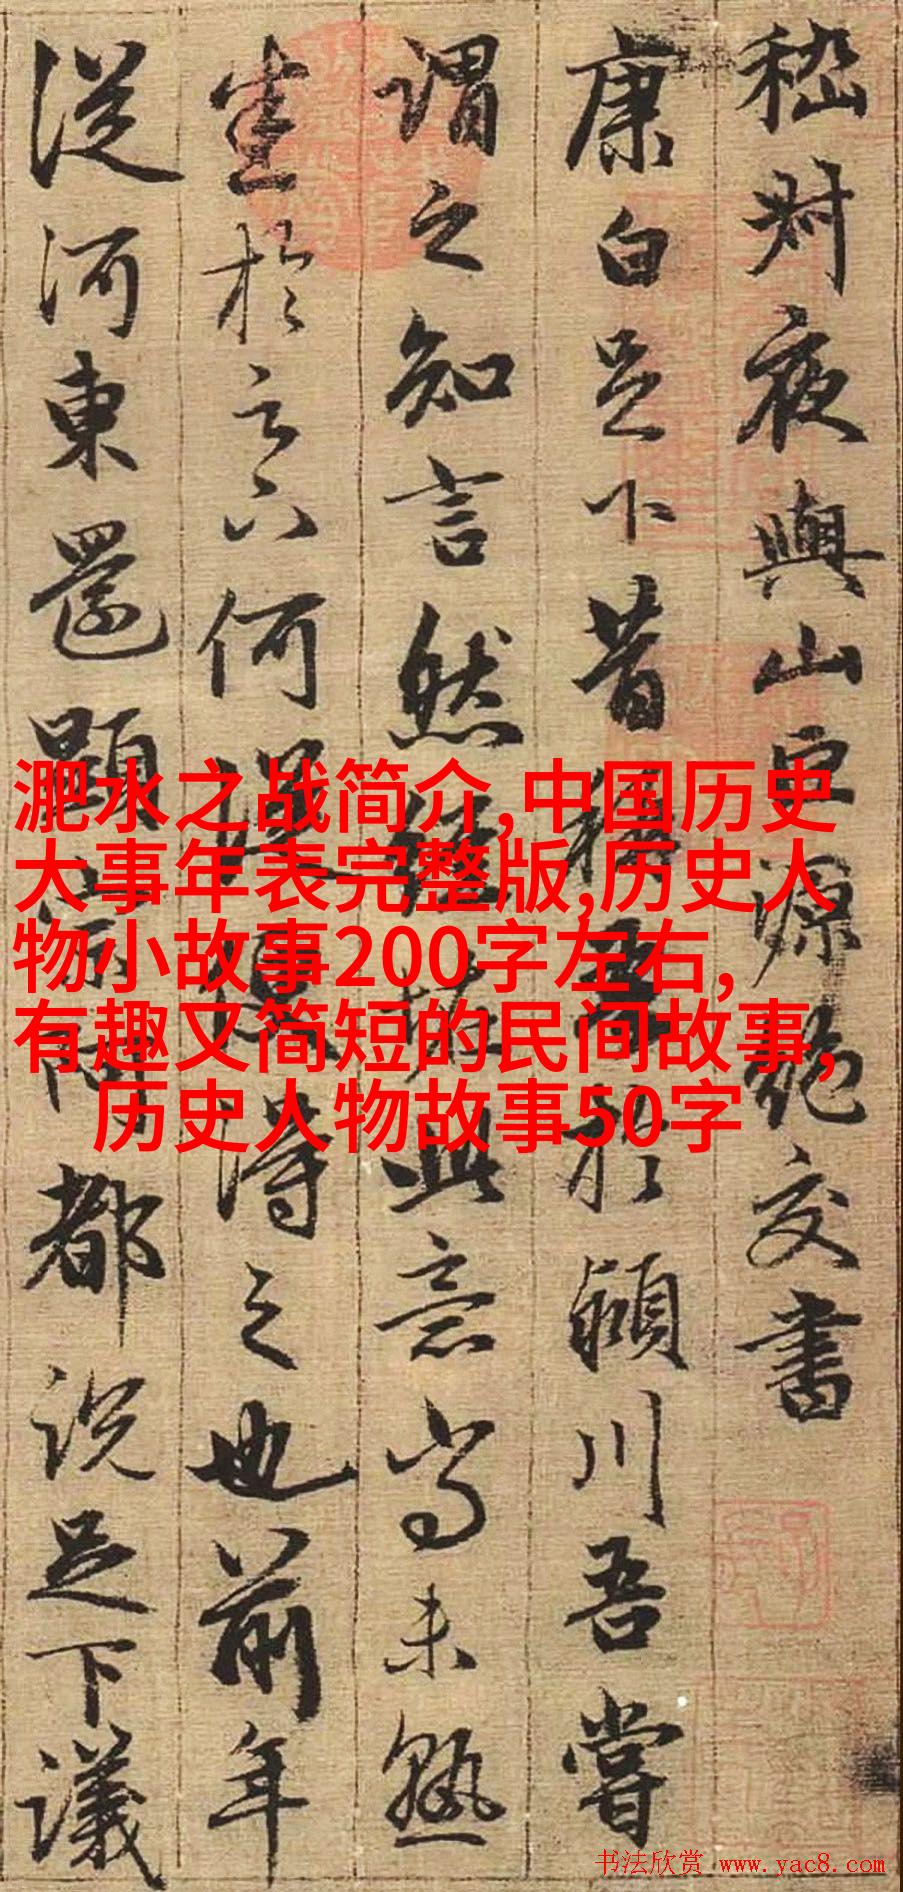 淝水之战简介,中国历史
大事年表完整版,历史人
物小故事200字左右,
有趣又简短的民间故事,
历史人物故事50字
嵇叔夜與山巨源絕交書
康白足下昔稱吾於潁川吾嘗
謂之知言然經怪此意尚未熟
於足下何從便得之也前年
從河東還顯宗阿都説足下議
书法欣赏 www.yac8.com